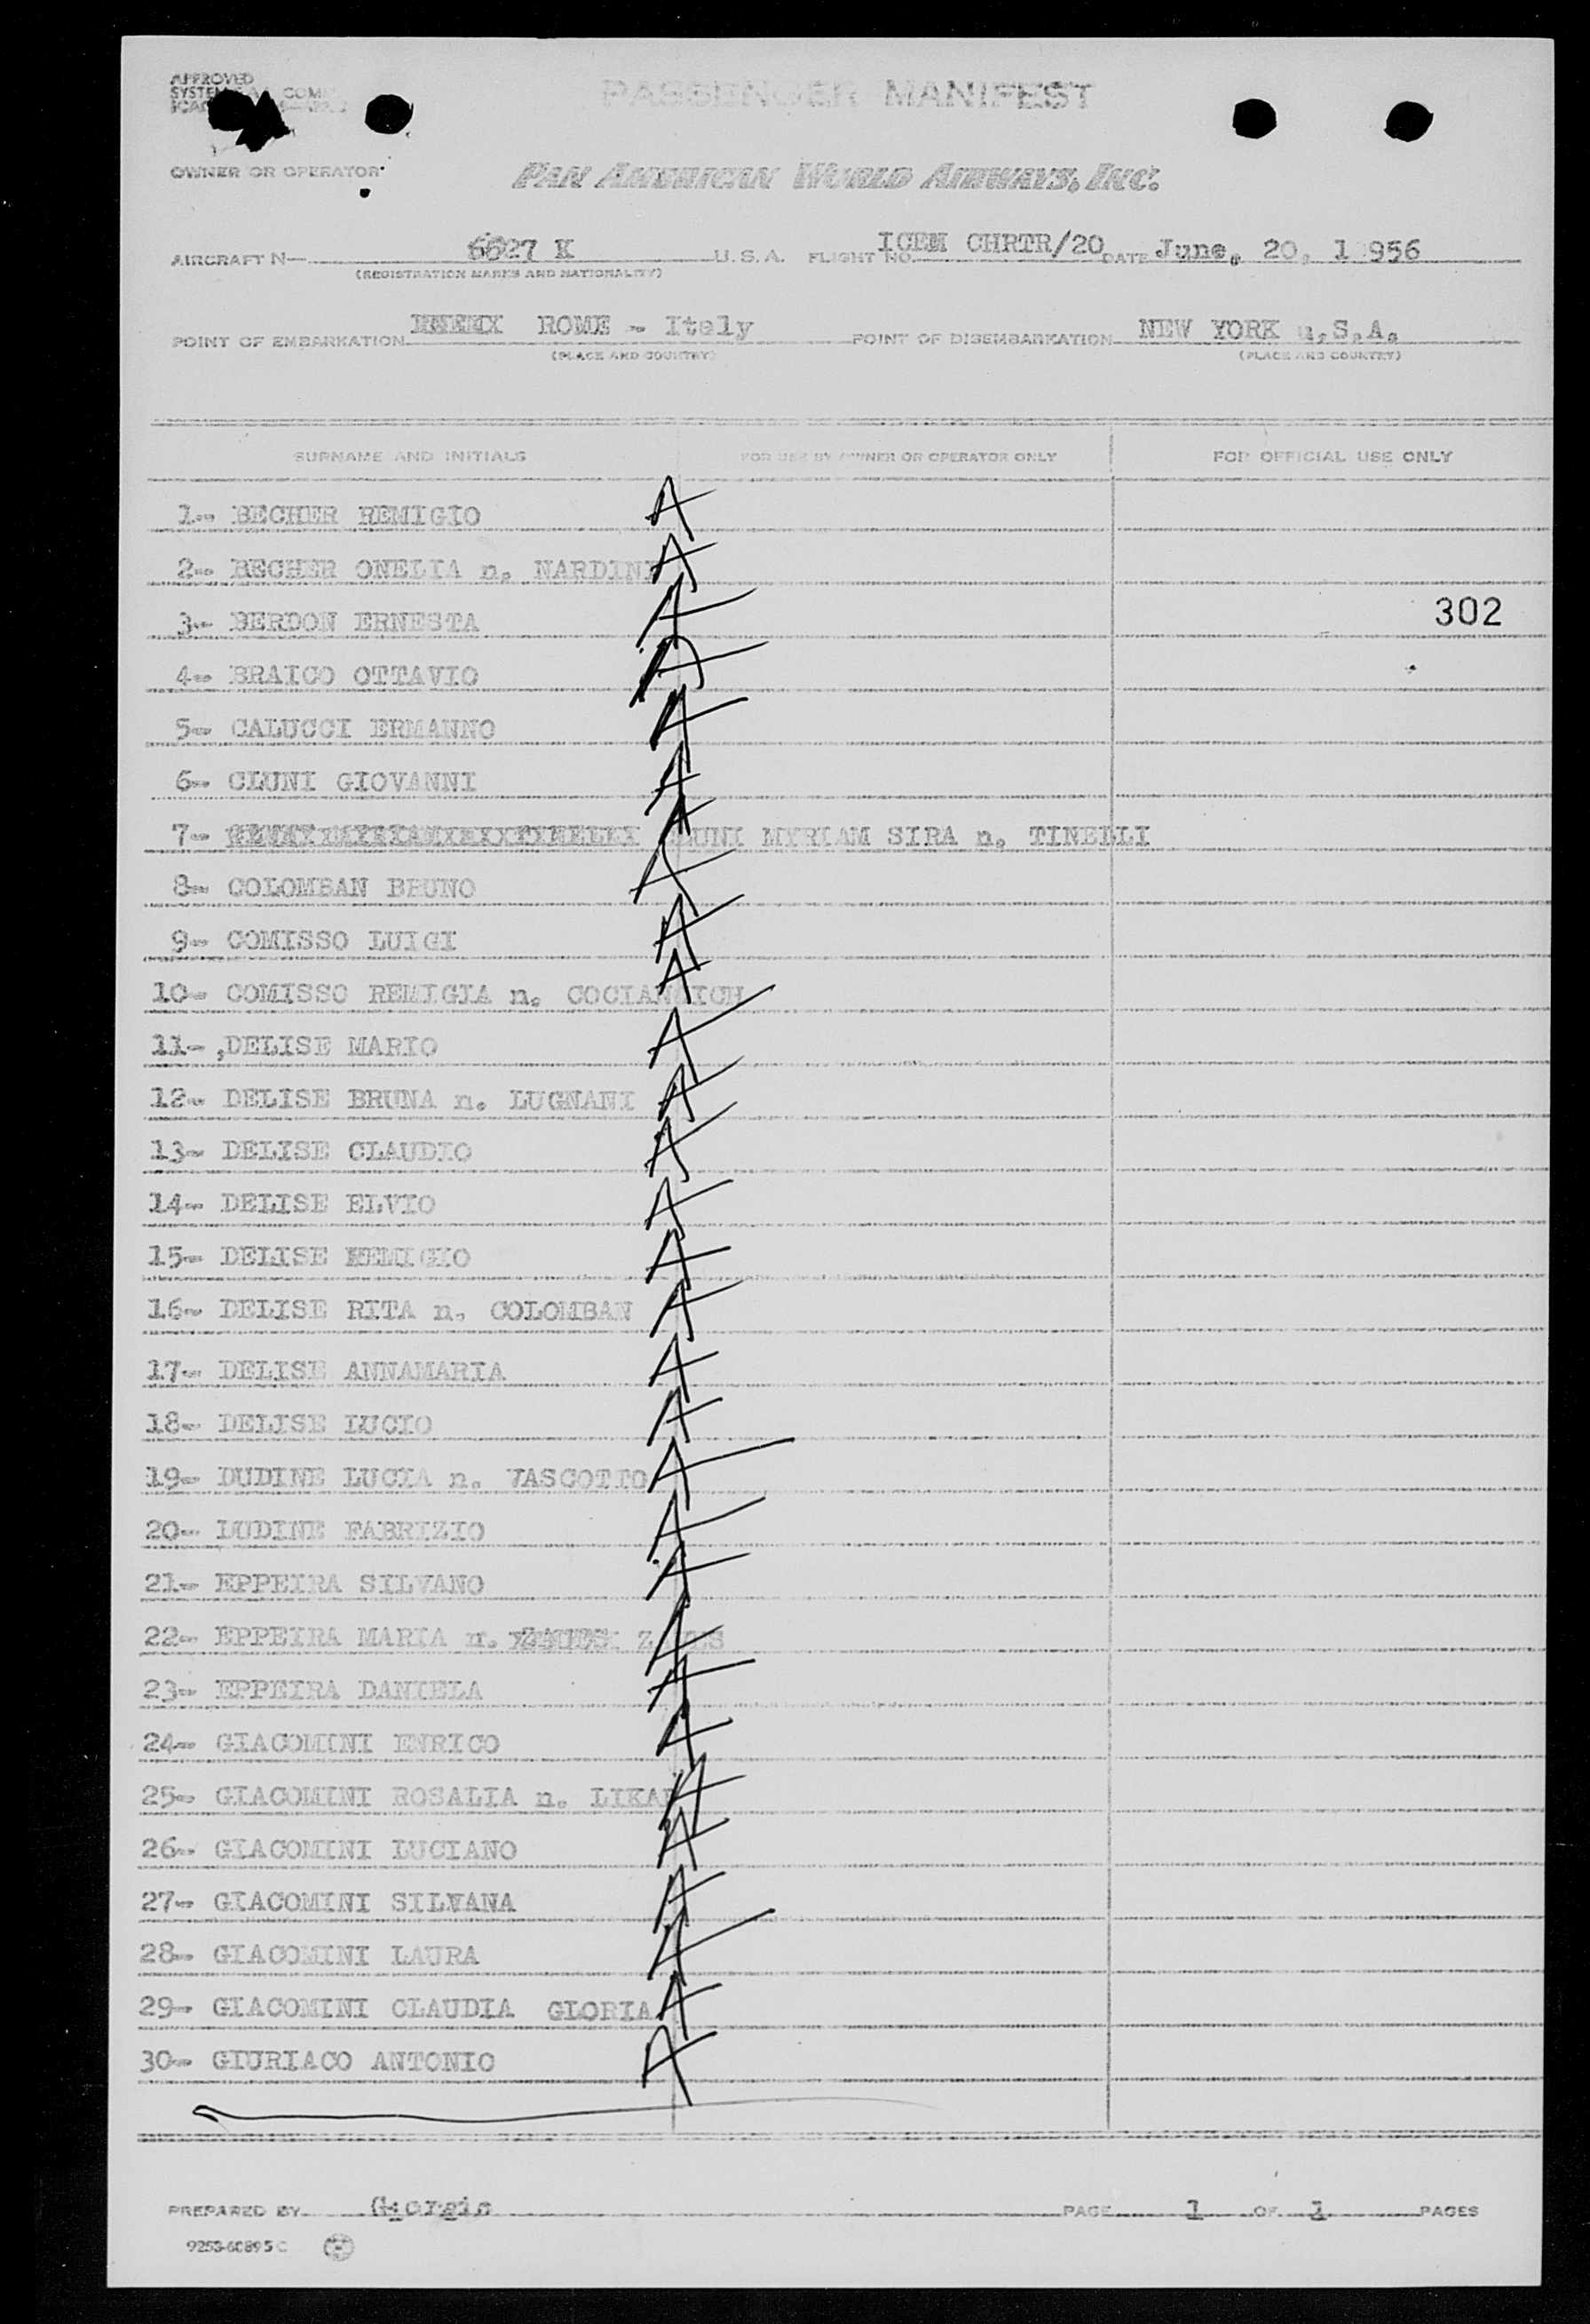 APPROVED
SYSTEM COM
PASSENGER MANIFEST
OWNER OR OPERATOR
PAN AMERICAN WORLD AIRWAYS, INC.
AIRCRAFT N— 6627 K U.S.A. FLIGHT NO. ICEM CHRTR/20 DATE June, 20, 1 956
(REGISTRATION MARKS AND NATIONALITY)
POINT OF EMBARKATION ROME - Italy POINT OF DISEMBARKATION NEW YORK u,S,A,
(PLACE AND COUNTRY) (PLACE AND COUNTRY)
SURNAME AND INITIALS FOR USE BY OWNER OR OPERATOR ONLY FOR OFFICIAL USE ONLY
1-- BECHER REMIGIO A
2-- BECHER ONELIA n. NARDINI A
3-- BERDON ERNESTA A 302
4-- BRAICO OTTAVIO A
5-- CALUCCI ERMANNO A
6-- CLUNI GIOVANNI A
7-- A CLUNI MYRIAM SIRA n. TINELLI
8-- COLOMBAN BRUNO A
9-- COMISSO LUIGI A
10-- COMISSO REMIGIA n. COCIANCICH A
11- ,DELISE MARIO A
12-- DELISE BRUNA n. LUGNANI A
13-- DELISE CLAUDIO A
14-- DELISE ELVIO A
15-- DELISE REMIGIO A
16-- DELISE RITA n. COLOMBAN A
17-- DELISE ANNAMARIA A
18-- DELISE LUCIO A
19-- DUDINE LUCIA n. VASCOTTO A
20-- DUDINE FABRIZIO A
21-- EPPEIRA SILVANO A
22-- EPPEIRA MARIA n. A
23-- EPPEIRA DANIELA A
24-- GIACOMINI ENRICO A
25-- GIACOMINI ROSALIA n. A
26-- GIACOMINI LUCIANO A
27-- GIACOMINI SILVANA A
28-- GIACOMINI LAURA A
29-- GIACOMINI CLAUDIA GLORIA A
30-- GIURIACO ANTONIO A
PREPARED BY Giorgio PAGE 1 OF 1 PAGES
9253-60895C